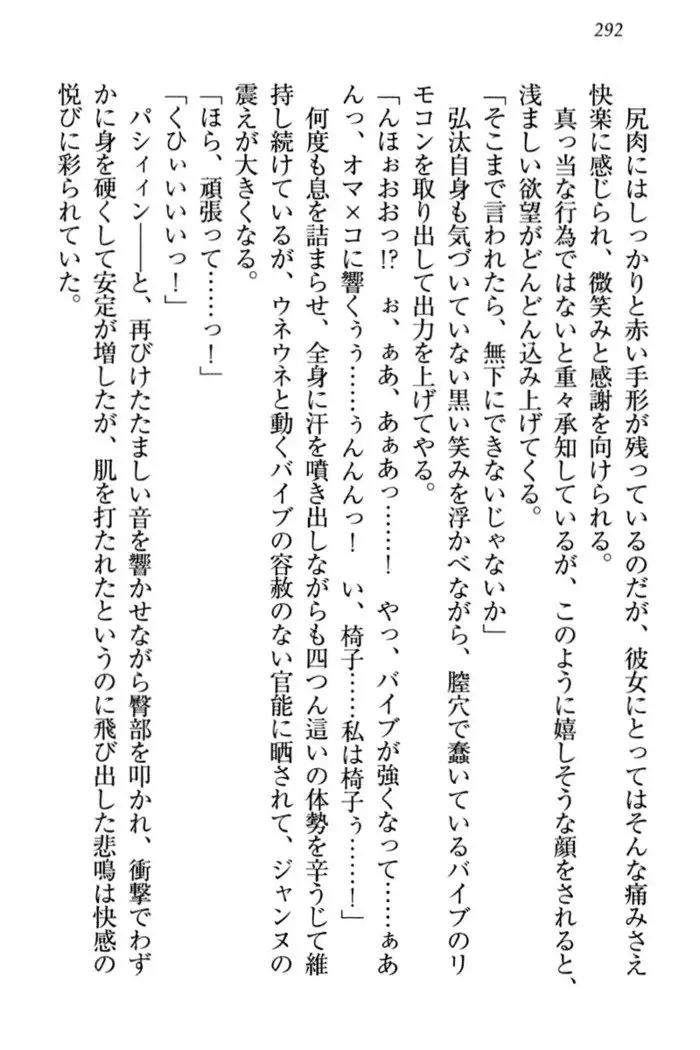 292
尻肉にはしっかりと赤い手形が残っているのだが、彼女にとってはそんな痛みさえ
快楽に感じられ、微笑みと感謝を向けられる。
真っ当な行為ではないと重々承知しているが、このように嬉しそうな顔をされると、
浅ましい欲望がどんどん込み上げてくる。
「そこまで言われたら、無下にできないじゃないか」
弘汰自身も気づいていない黒い笑みを浮かべながら、膣穴で蠢いているバイブのリ
モコンを取り出して出力を上げてやる。
「んほぉおおっ!? ぉ、ぁあ、あぁあっ……！ やっ、バイブが強くなって……ぁあ
んっ、オマ×コに響くぅぅ……ぅんんんっ！ い、椅子……私は椅子ぅ……！」
何度も息を詰まらせ、全身に汗を噴き出しながらも四つん這いの体勢を辛うじて維
持し続けているが、ウネウネと動くバイブの容赦のない官能に晒されて、ジャンヌの
震えが大きくなる。
「ほら、頑張って……っ！」
「くひぃいいいいっ！」
パシィィン――と、再びけたたましい音を響かせながら臀部を叩かれ、衝撃でわず
かに身を硬くして安定が増したが、肌を打たれたというのに飛び出した悲鳴は快感の
悦びに彩られていた。